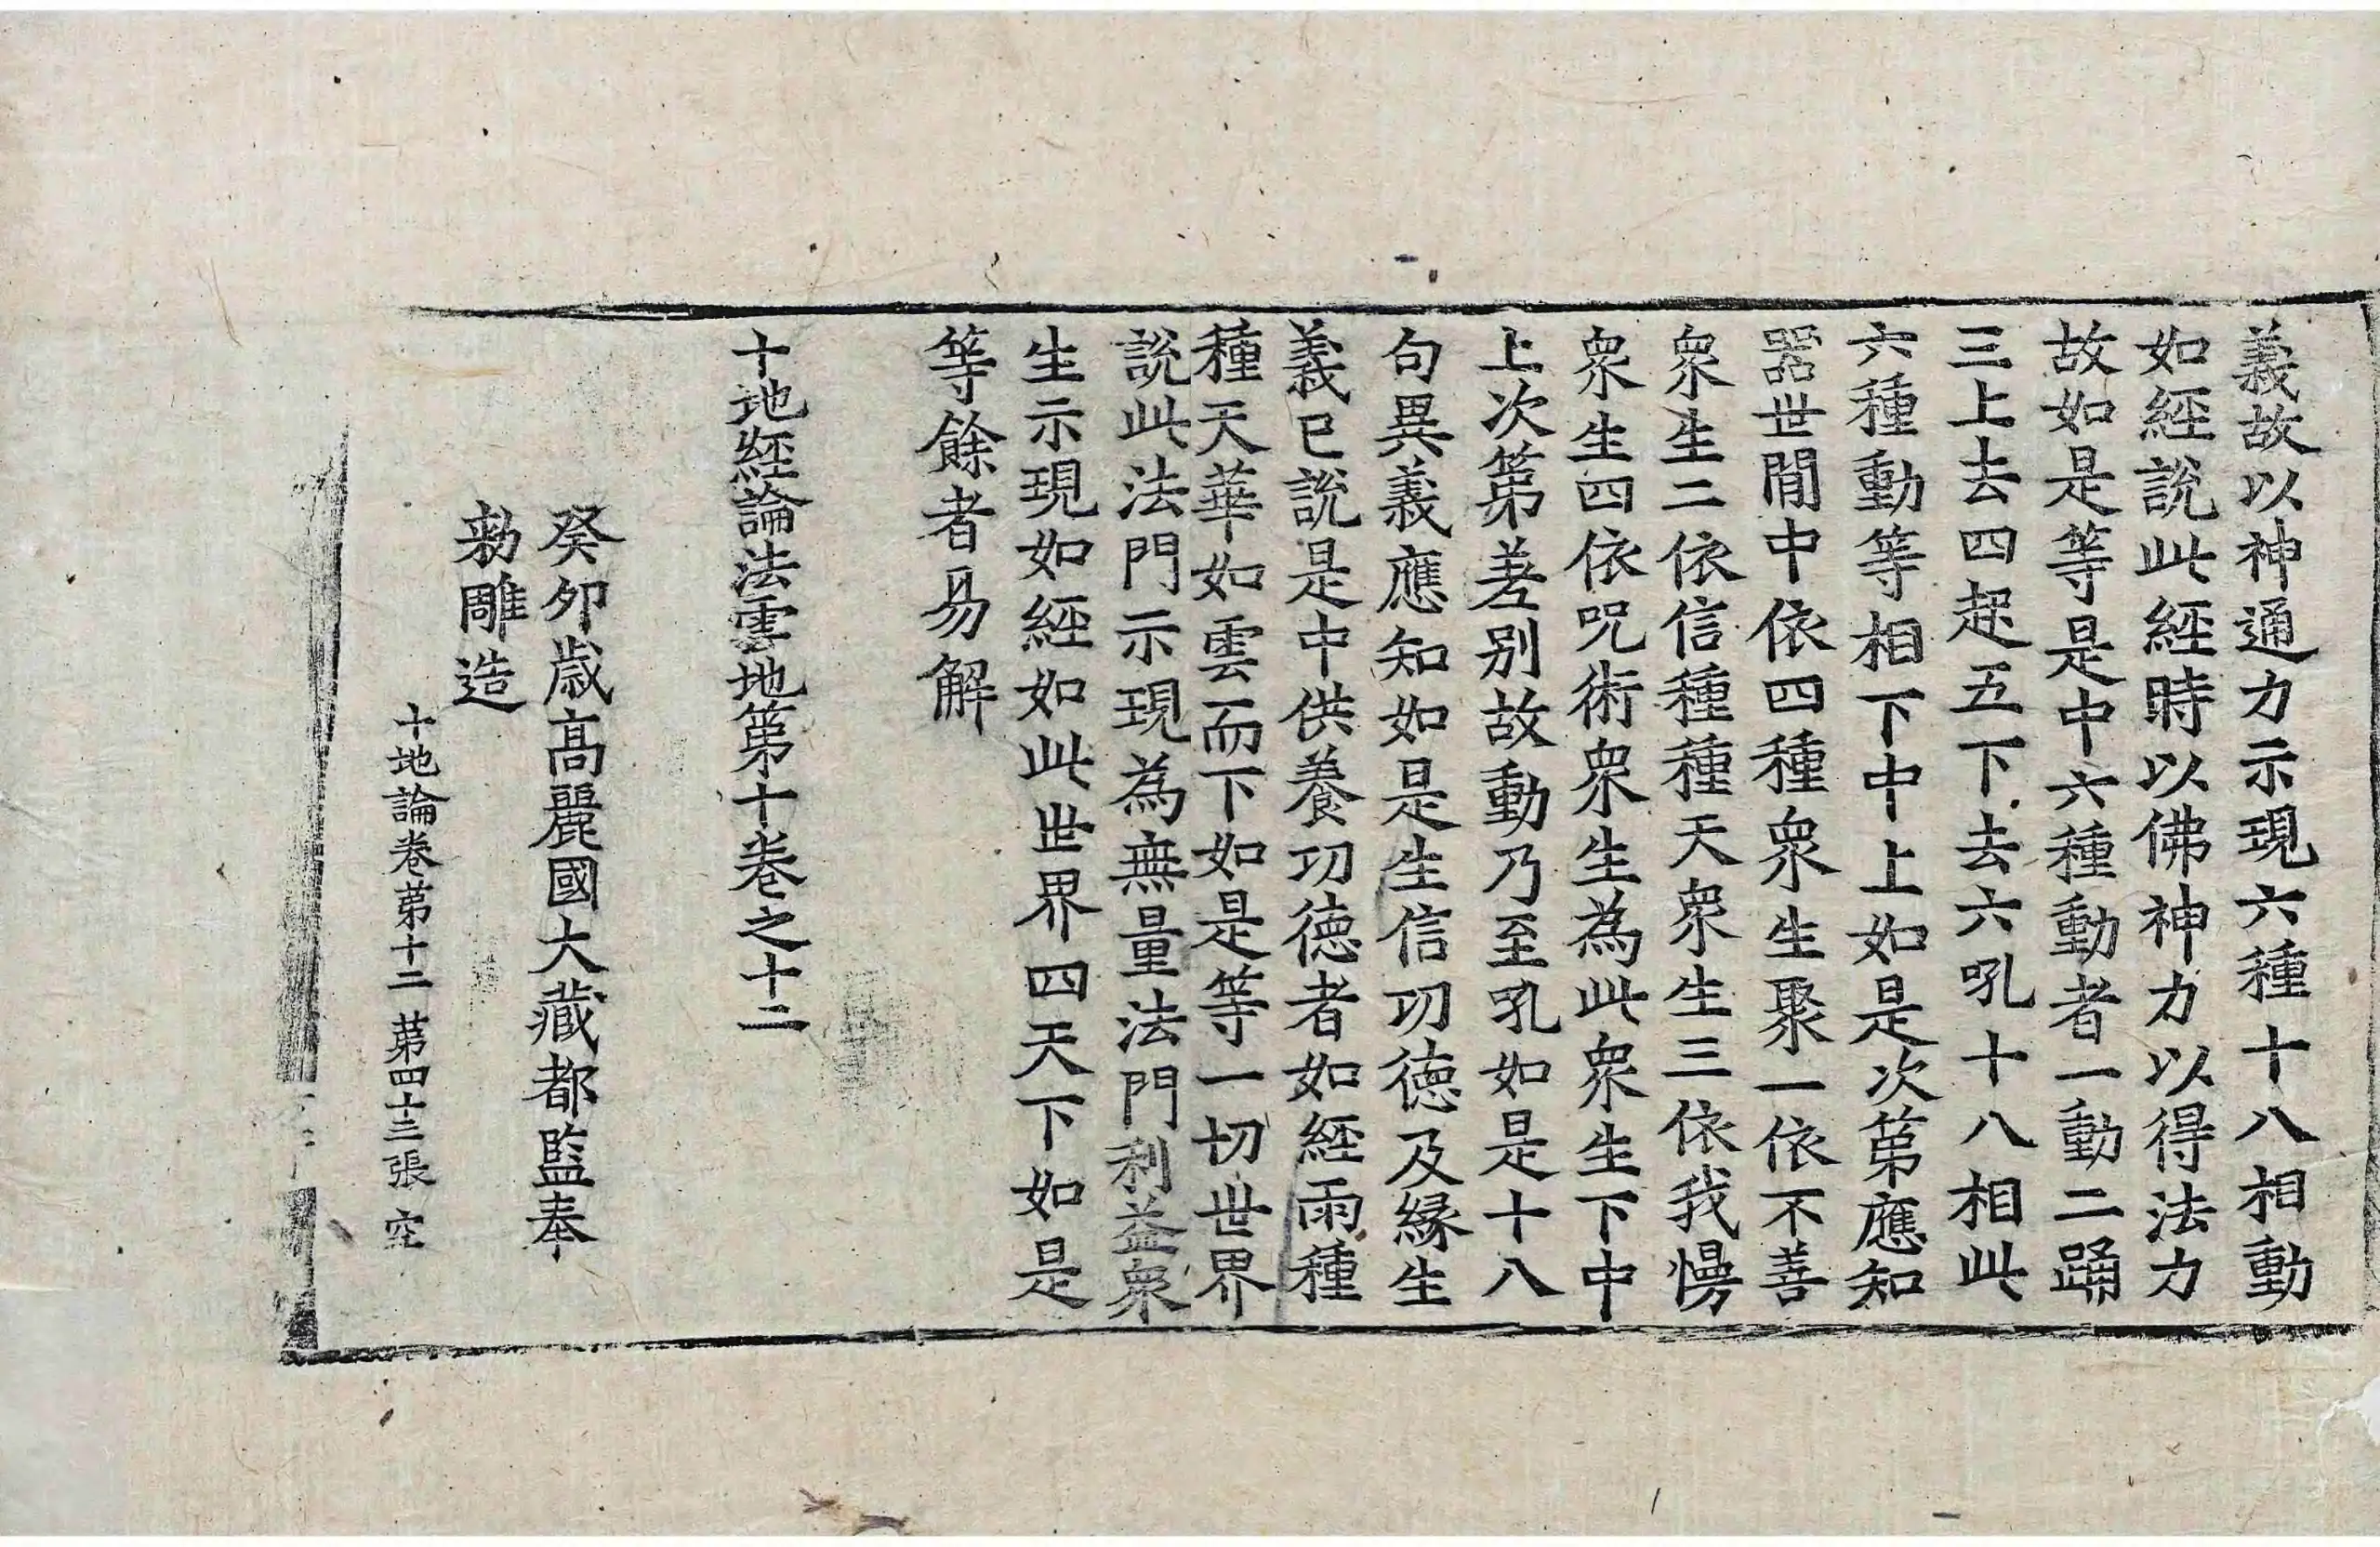 義故以神通力示現六種十八相動
如經說此經時以佛神力以得法力
故如是等是中六種動者一動二踊
三上去四起五下去六吼十八相此
六種動等相下中上如是次第應知
器世閒中依四種衆生聚一依不善
衆生二依信種種天衆生三依我慢
衆生四依呪術衆生為此衆生下中
上次第差别故動乃至吼如是十八
句異義應知如是生信功德及緣生
義已說是中供養功德者如經雨種
種天華如雲而下如是等一切世界
說此法門示現為無量法門利益衆
生示現如經如此世界四天下如是
等餘者易解
十地經論法雲地第十卷之十二
癸卯歲高麗國大藏都監奉
勅雕造
十地論卷第十二 第四十三張 空